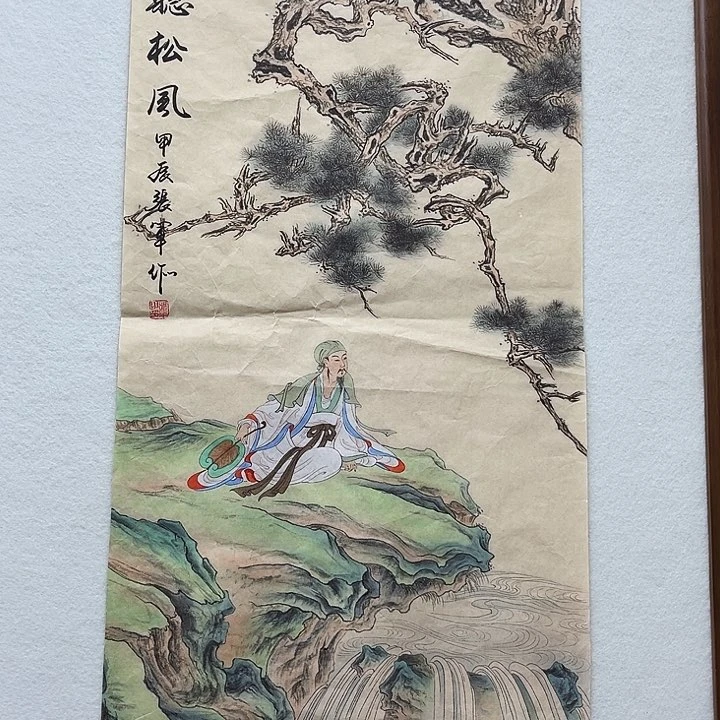 聽松風甲辰張軍作